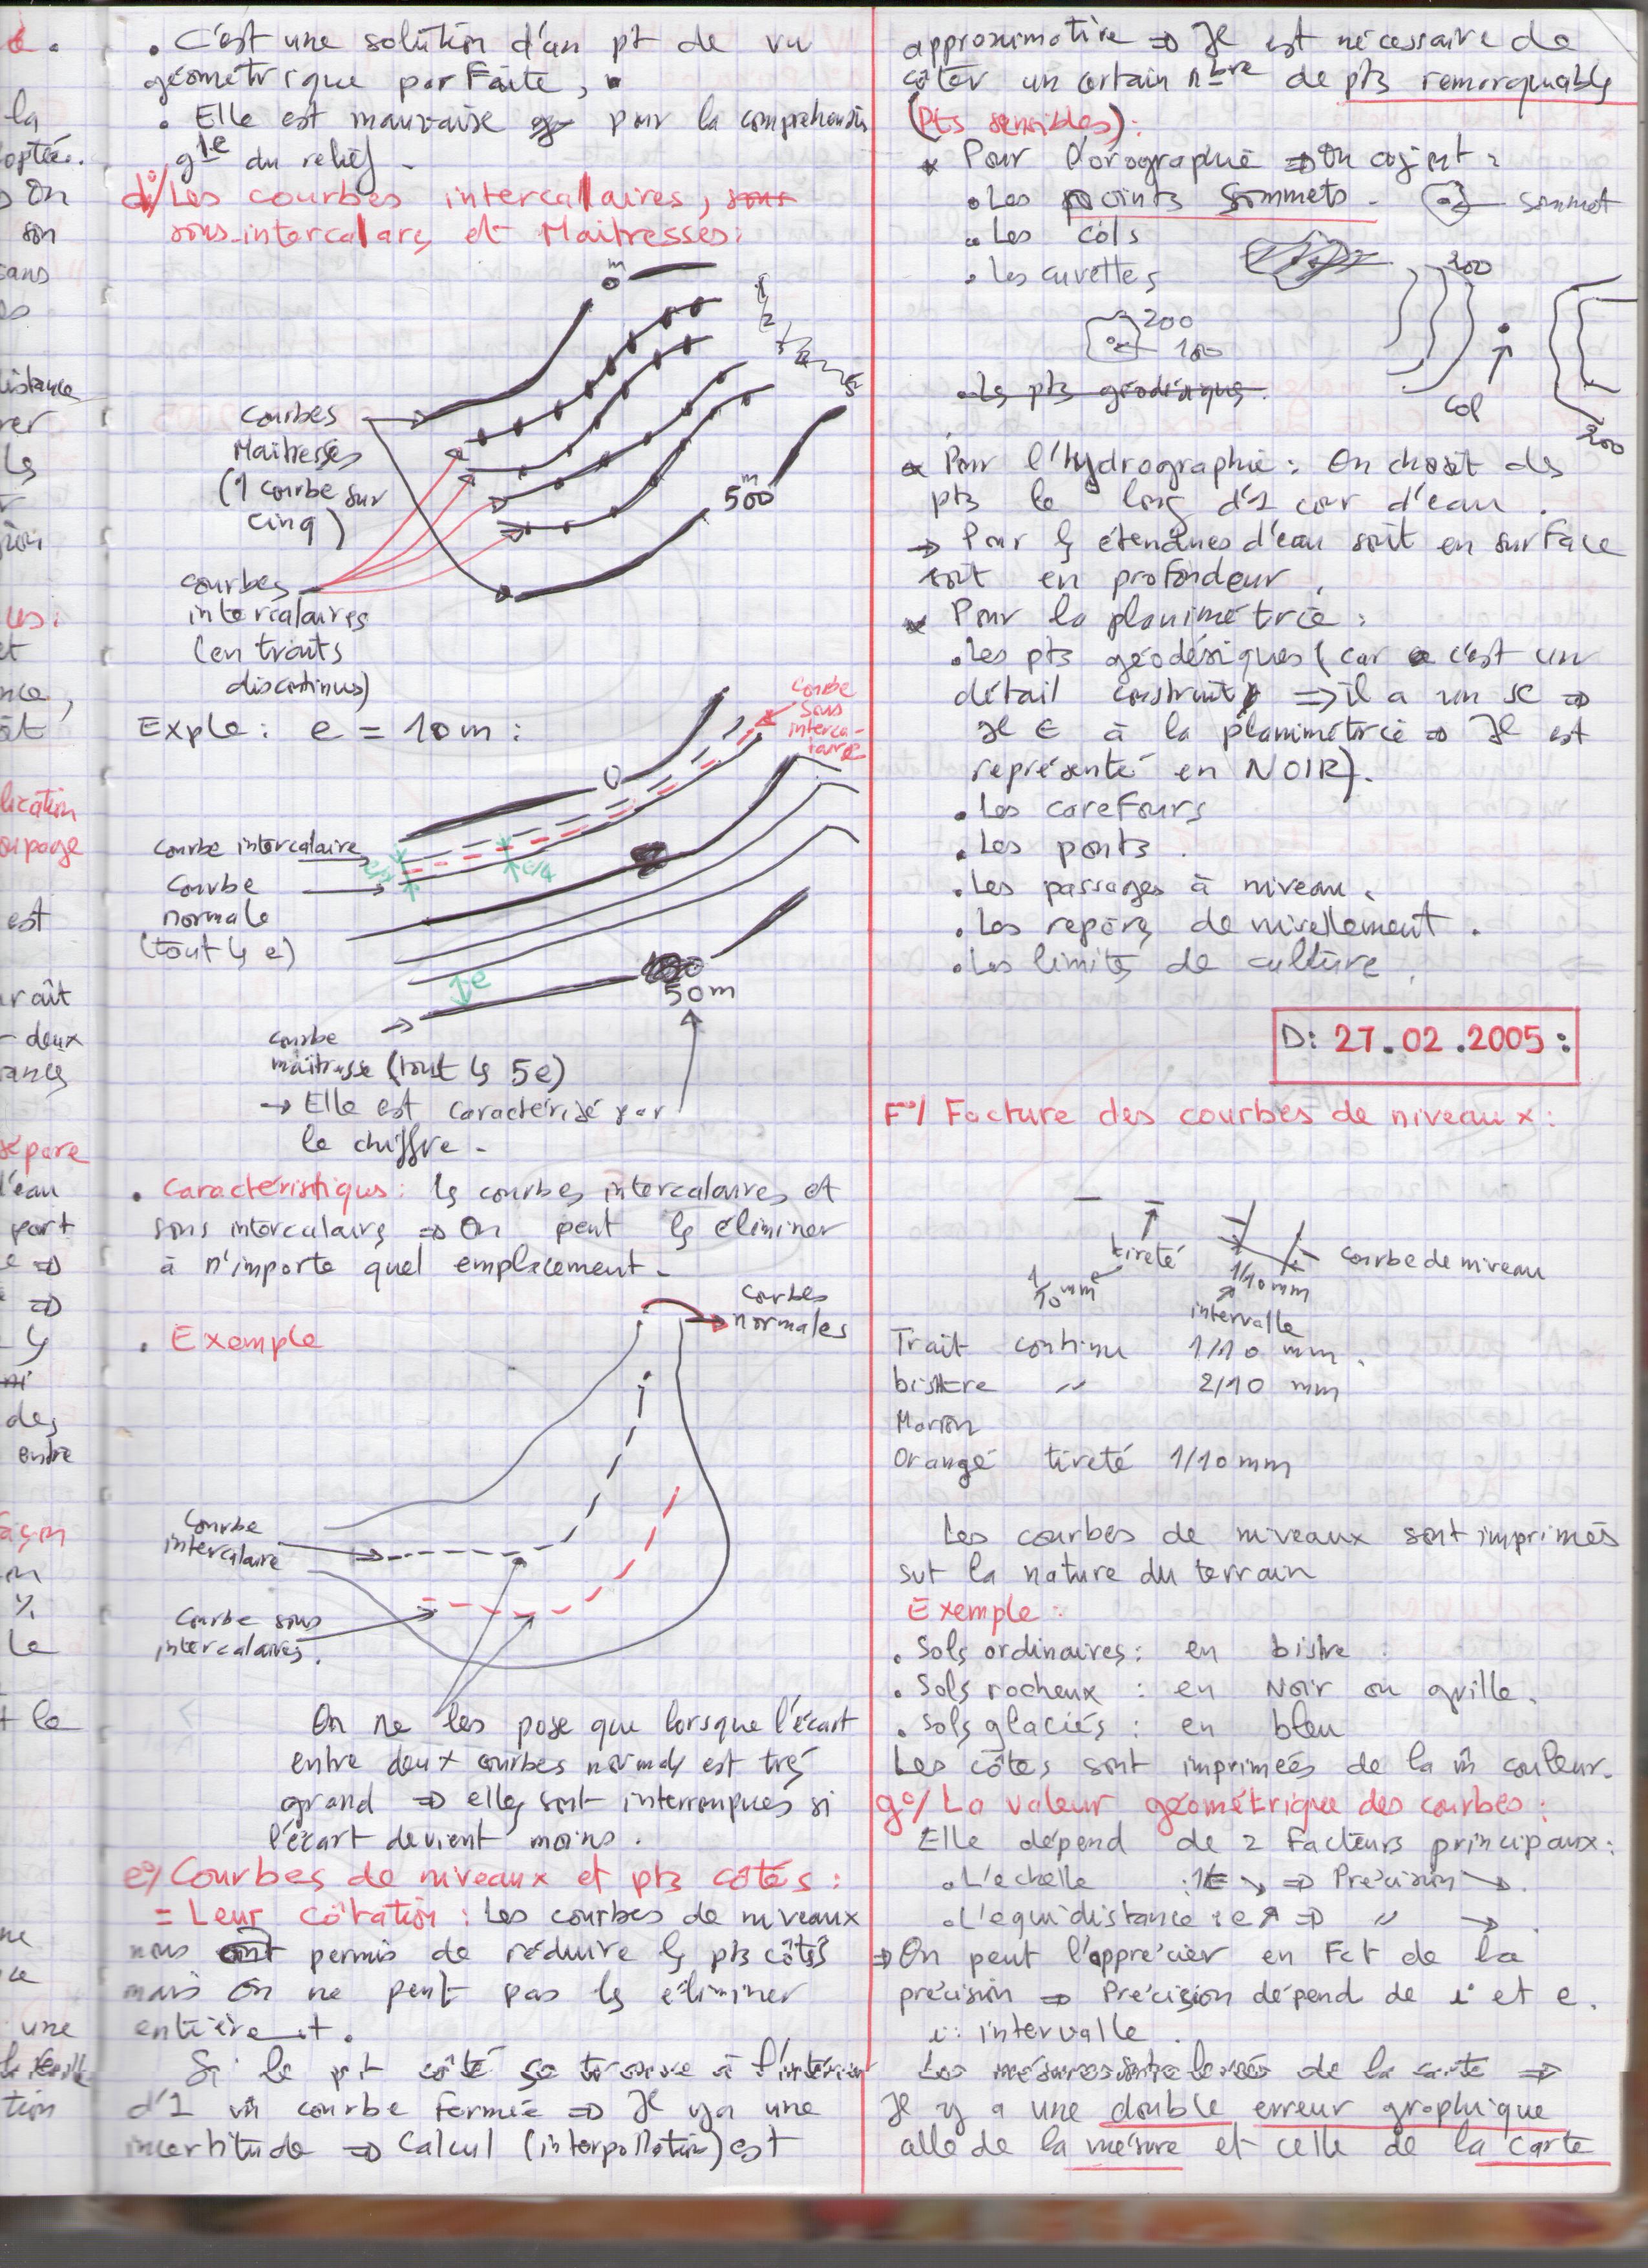 . C'est une solution d'un pt de vu
géométrique parfaite,
. Elle est mauvaise pour la comprehension
gle du relief.
d°/ Les courbes intercalaires,
sous-intercalars et Maitresses:
0m
1
2
3
4
5
courbes
Maitresses
(1 courbe sur
cinq)
500m
courbes
intercalaires
(en traits
discontinus)
Exple: e = 10m:
Courbe
sous
interca-
laire
0
courbe intercalaire
e/2
e/4
courbe
normale
(tout ls e)
e
50m
courbe
maitresse (tout ls 5e)
→ Elle est caractérisé par
le chiffre.
. Caractéristiqus: ls courbes intercalaires et
sous intercalairs ⇒ On peut ls éliminer
à n'importe quel emplacement.
courbes
normales
. Exemple
Courbe
intercalaire
Courbe sous
intercalaires.
On ne les pose que lorsque l'écart
entre deux courbes normals est très
grand ⇒ elles sont interrompues si
l'écart devient moins.
e°/ Courbes de niveaux et pts côtés:
= Leur côtation: Les courbes de niveaux
nous ont permis de réduire ls pts côtés
mais on ne peut pas ls éliminer
entièremt.
Si le pt côté se trouve à l'intérieur
d'1 m̂ courbe fermée ⇒ Il y a une
incertitude ⇒ Calcul (interpollation) est
approximative ⇒ Il est nécessaire de
côter un certain nbre de pts remarquabls
(Pts sensibles):
* Pour l'orographie ⇒ On cojnt:
. Les points sommets.
sommet
. Les cols
. Les cuvettes
200
200
100
. Les pts géodésiques.
col
200
* Pour l'hydrographie: On choisit des
pts le long d'1 cour d'eau.
→ Pour ls étendues d'eau soit en surface
soit en profondeur.
* Pour la planimétrie:
. Les pts géodésiques (car c'est un
détail construit ⇒ il a un sc ⇒
Il ∈ à la planimétrie ⇒ Il est
représenté en NOIR).
. Les carefours
. Les ponts.
. Les passages à niveau.
. Les repers de nivellement.
. Les limits de culture.
D: 27.02.2005:
F°/ Facture des courbes de niveaux:
tireté
1/10 mm
courbe de niveau
1/10 mm
intervalle
Trait continu 1/10 mm.
bistre " 2/10 mm
Marron
Orangé tireté 1/10 mm
Les courbes de niveaux sont imprimés
sut la nature du terrain
Exemple:
. Sols ordinaires: en bistre
. Sols rocheux: en Noir ou grille.
. Sols glaciés: en bleu
Les côtes sont imprimées de la m̂ couleur.
g°/ La valeur géométrique des courbes:
Elle dépend de 2 Facteurs principaux:
. L'echelle : 1E ↘ ⇒ Précision ↘.
. L'equidistance: e ↗ ⇒ " ↘.
⇒ On peut l'apprécier en Fct de la
précision ⇒ Précision dépend de i et e.
i: intervalle.
Les mésures de la carte ⇒
Il y a une double erreur graphique
alle de la mésure et celle de la carte